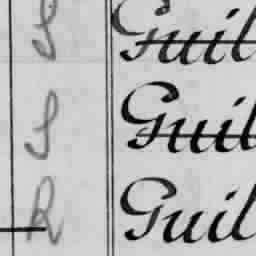 S Guil
S Guil
R Guil